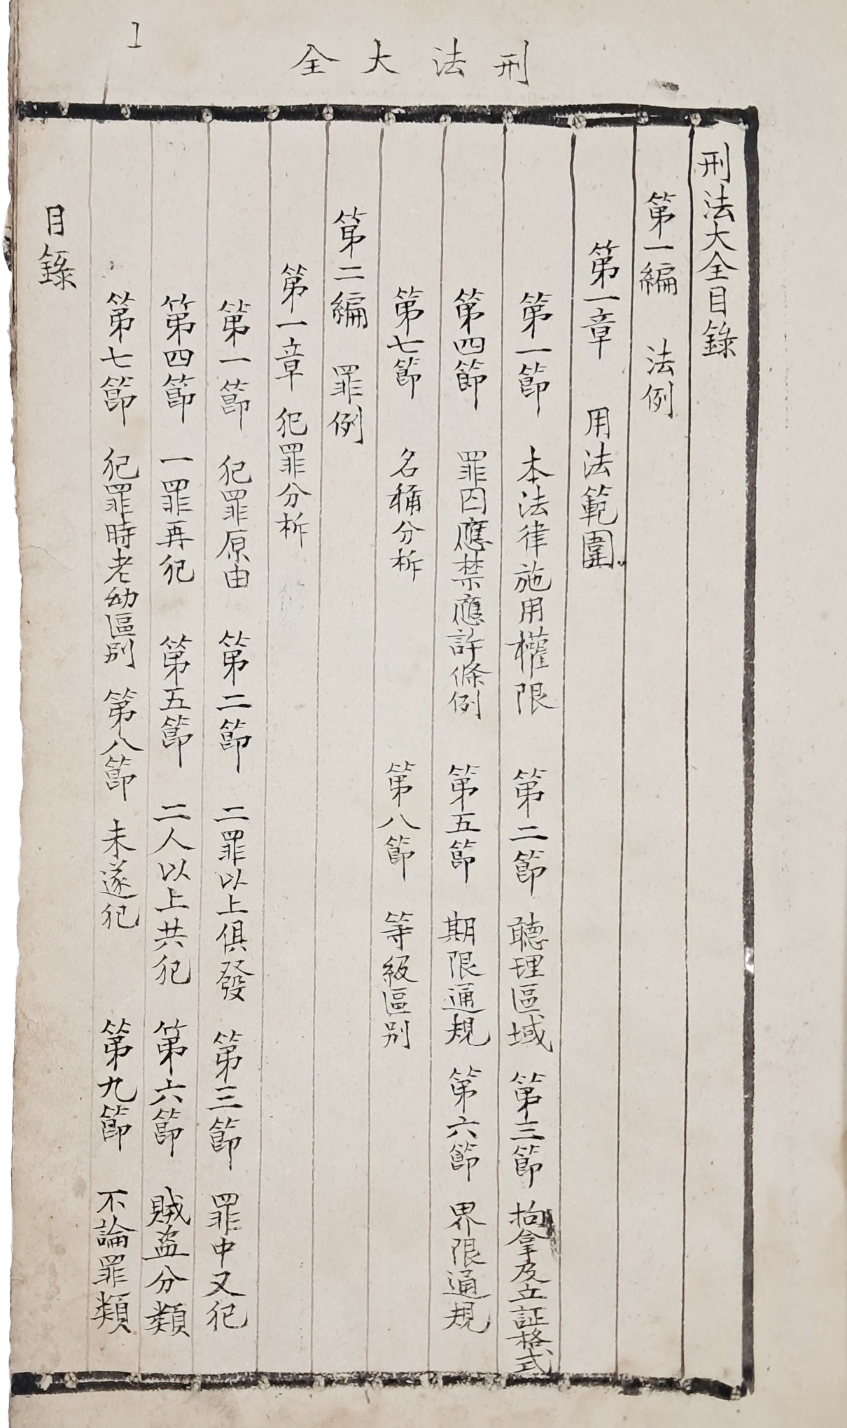 1
刑法大全
刑法大全目錄
第一編 法例
第一章 用法範圍
第一節 本法律施用權限 第二節 聽理區域 第三節 拘拿及立証格式
第四節 罪囚應禁應許條例 第五節 期限通規 第六節 界限通規
第七節 名稱分析 第八節 等級區別
第二編 罪例
第一章 犯罪分析
第一節 犯罪原由 第二節 二罪以上俱發 第三節 罪中又犯
第四節 一罪再犯 第五節 二人以上共犯 第六節 賊盜分類
第七節 犯罪時老幼區別 第八節 未遂犯 第九節 不論罪類
目錄